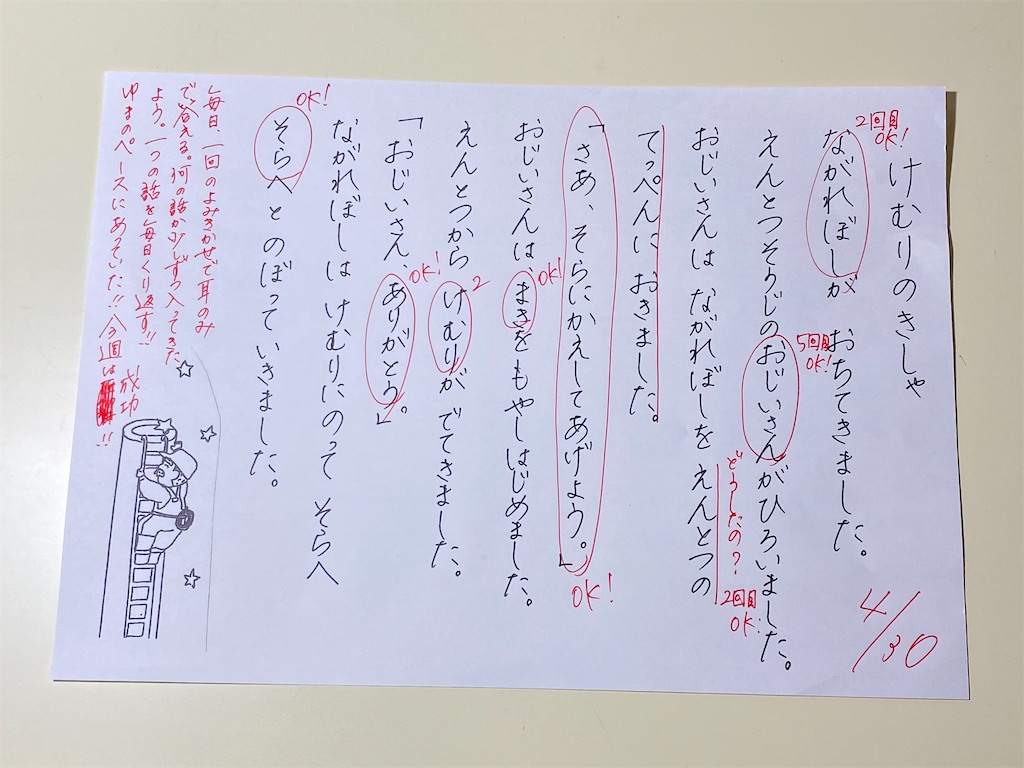 けむりのきしゃ
ながれぼしが おちてきました。
えんとつそうじのおじいさんがひろいました。
おじいさんは ながれぼしを えんとつの
てっぺんに おきました。
「さあ、そらにかえしてあげよう。」
おじいさんは まきをもやしはじめました。
えんとつから けむりが でてきました。
「おじいさん、ありがとう。」
ながれぼしは けむりにのって そらへ
そらへ とのぼっていきました。
2回目
OK!
5回目
OK!
どうしたの?
2回目
OK!
OK!
OK!
2
OK!
OK!
4/30
毎日、一回のよみきかせで耳のみ
で答える。何の話か少しずつ入ってきた
よう。一つの話を毎日くり返す!!
ゆまのペースにあっていた!!今週は成功!!